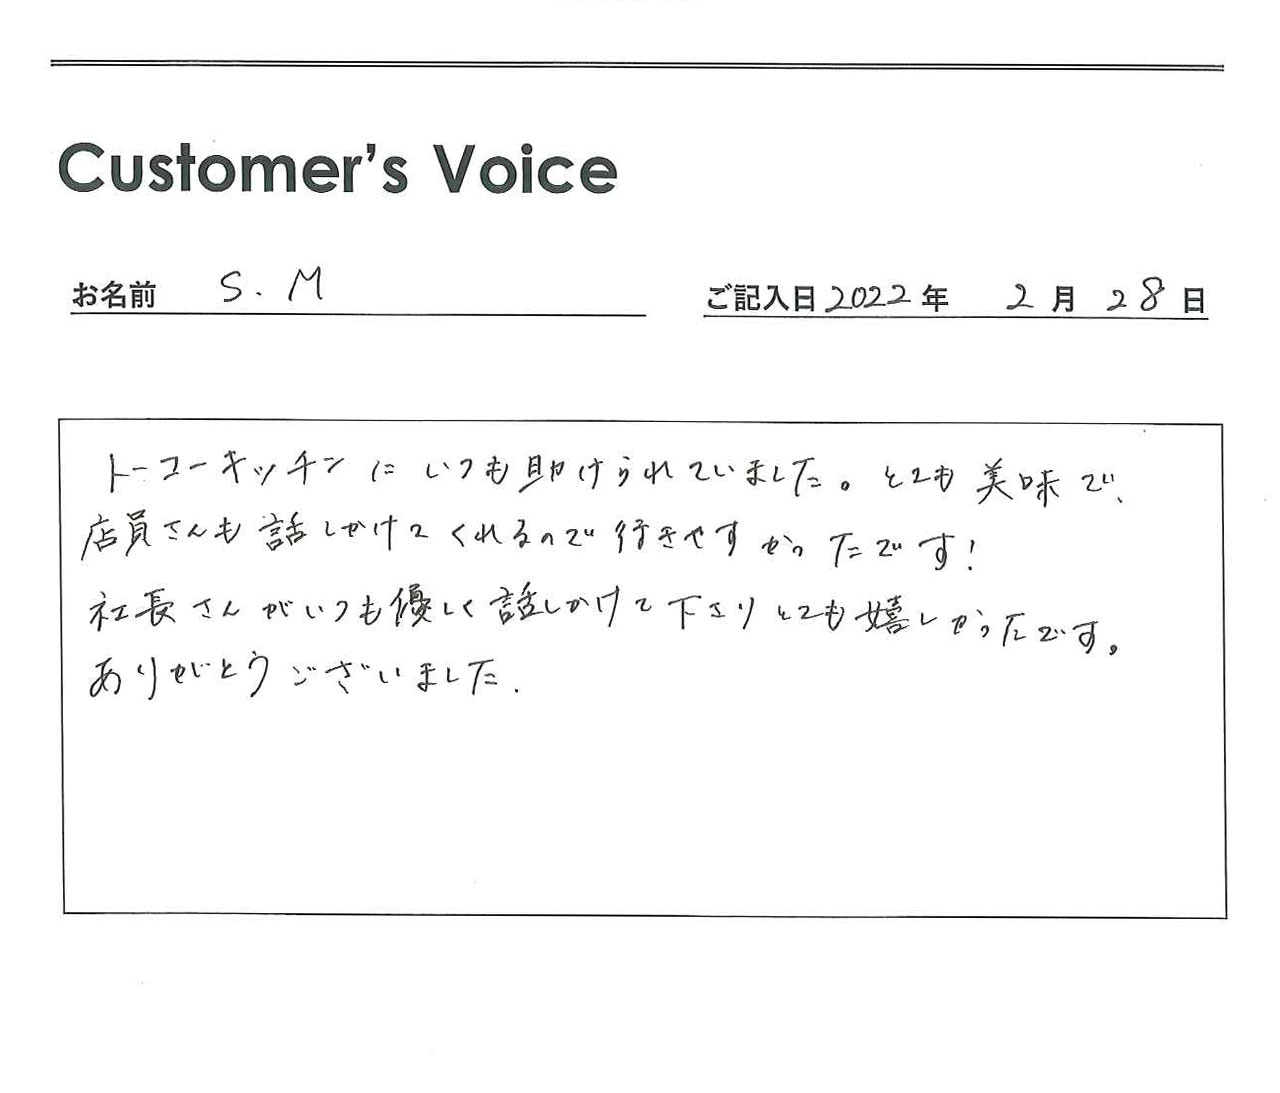 Customer's Voice
お名前 S. M
ご記入日 2022年 2月 28日
トーコーキッチンにいつも助けられていました。とても美味で、
店員さんも話しかけてくれるので行きやすかったです!
社長さんがいつも優しく話しかけて下さりとても嬉しかったです。
ありがとうございました.